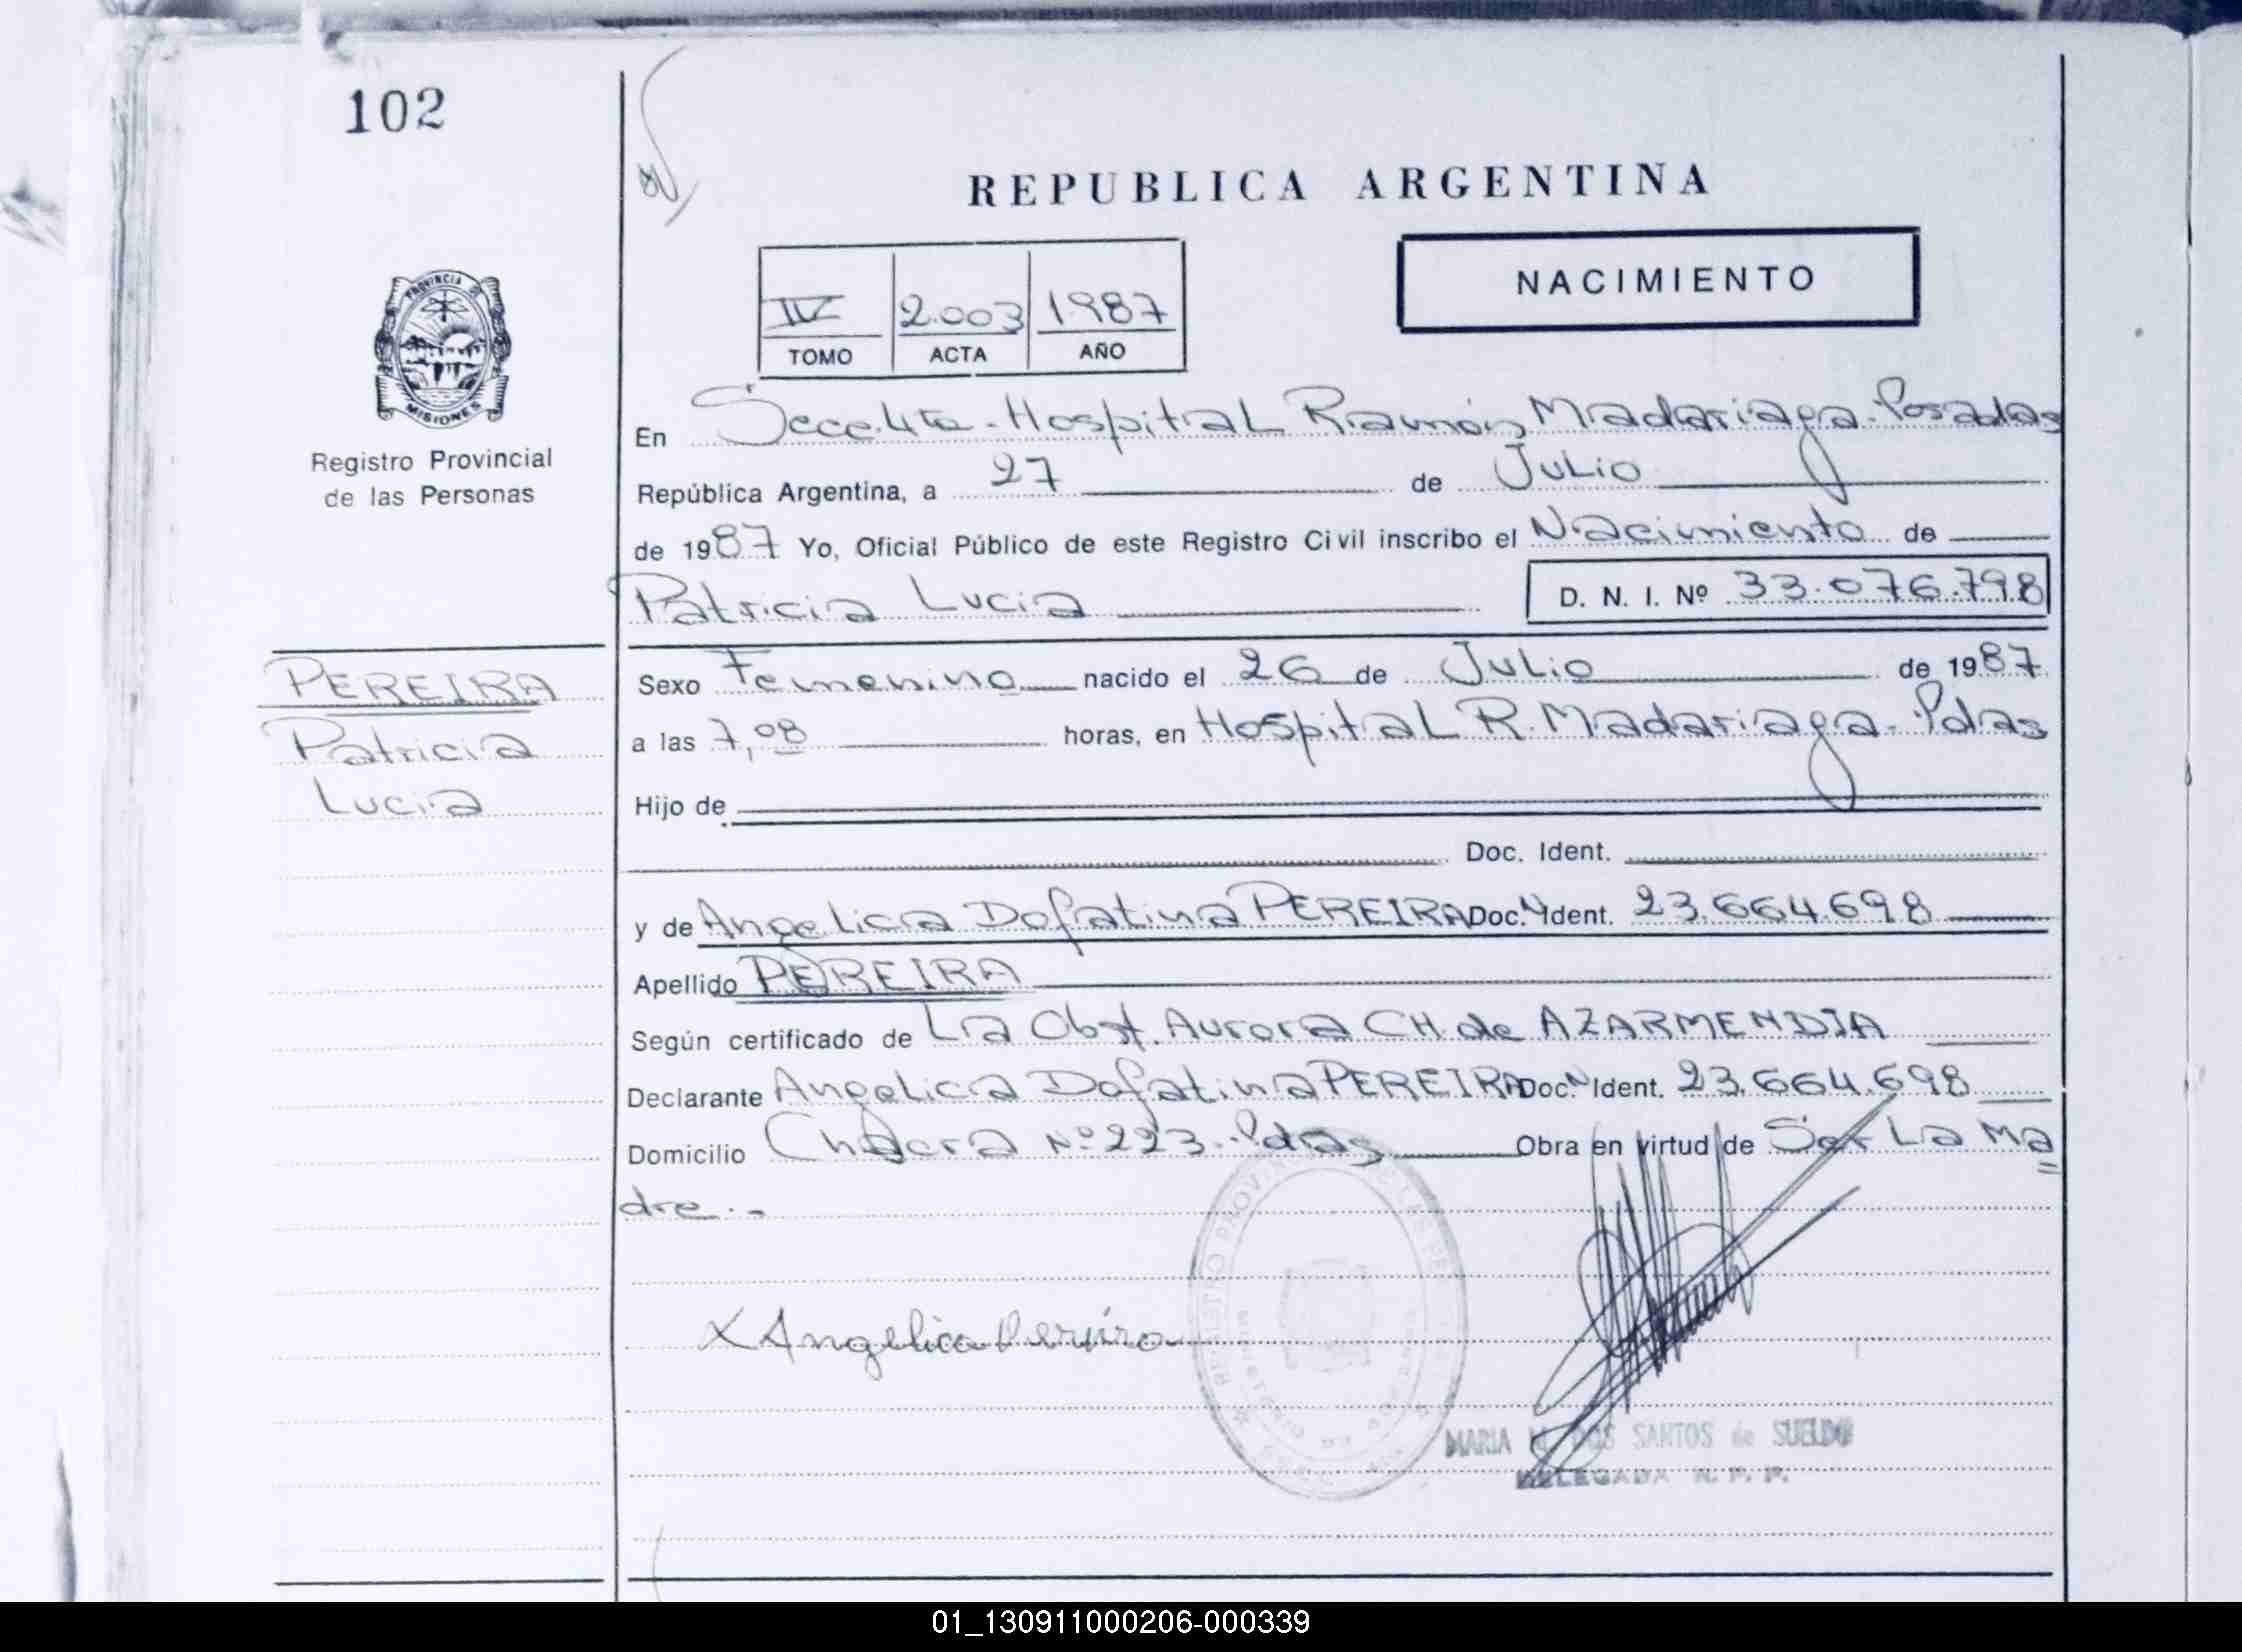 102
REPUBLICA ARGENTINA
NACIMIENTO
IV 2.003 1987
TOMO ACTA AÑO
PROVINCIA DE
MISIONES
Registro Provincial
de las Personas
En Secc. 4ta - Hospital Ramón Madariaga - Posadas
República Argentina, a 27 de Julio
de 1987 Yo, Oficial Público de este Registro Civil inscribo el Nacimiento de
Patricia Lucia D. N. I. Nº 33.076.798
PEREIRA
Patricia
Lucia
Sexo Femenino nacido el 26 de Julio de 1987
a las 7,08 horas, en Hospital R. Madariaga - Pdas
Hijo de
Doc. Ident.
y de Angelica Dofatina PEREIRA Doc. Ident. 23.664.698
Apellido PEREIRA
Según certificado de La Obst. Aurora CH. de AZARMENDIA
Declarante Angelica Dofatina PEREIRA Doc. Ident. 23.664.698
Domicilio Chacra Nº 223 - Pdas Obra en virtud de Ser La Ma
dre.-
X Angelica Pereira
REGISTRO PROVINCIAL DE LAS
MARIA M. DOS SANTOS de SUELDO
DELEGADA R. P. P.
01_130911000206-000339